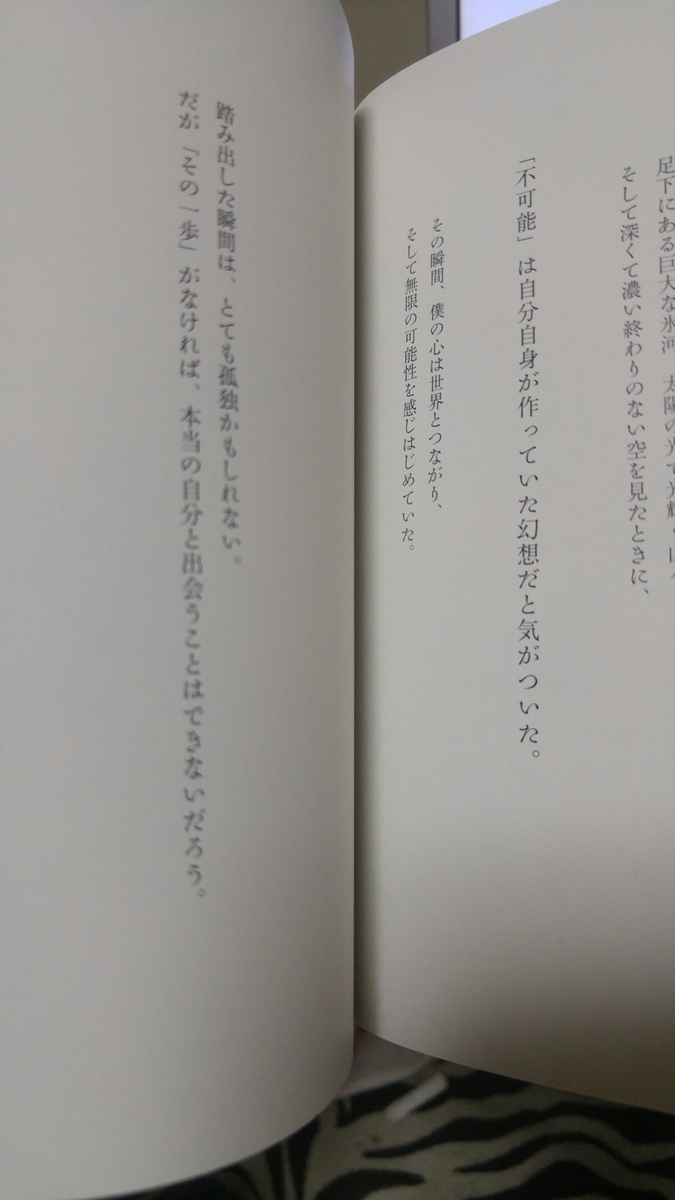 足下にある巨大な氷河 太陽の光で光輝
そして深くて濃い終わりのない空を見たときに、
「不可能」は自分自身が作っていた幻想だと気がついた。
その瞬間、僕の心は世界とつながり、
そして無限の可能性を感じはじめていた。
踏み出した瞬間は、とても孤独かもしれない。
だが「その一歩」がなければ、本当の自分と出会うことはできないだろう。